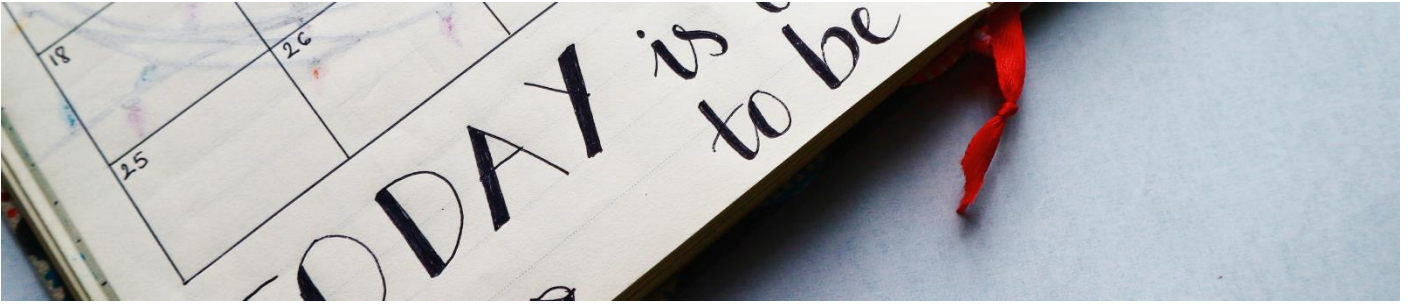 18
26
25
TODAY is
to be